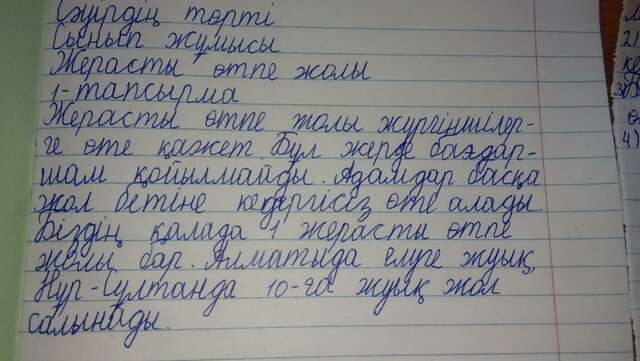 Сәуірдің төрті
Сынып жұмысы
Жерасты өтпе жолы
1-тапсырма
Жерасты өтпе жолы жүргіншілер-
ге өте қажет. Бұл жерде бағдар-
шам қойылмайды. Адамдар басқа
жол бетіне кедергісіз өте алады.
Біздің қалада 1 жерасты өтпе
жолы бар. Алматыда елуге жуық,
Нұр-Сұлтанда 10-ға жуық жол
салынады.
2)
4)